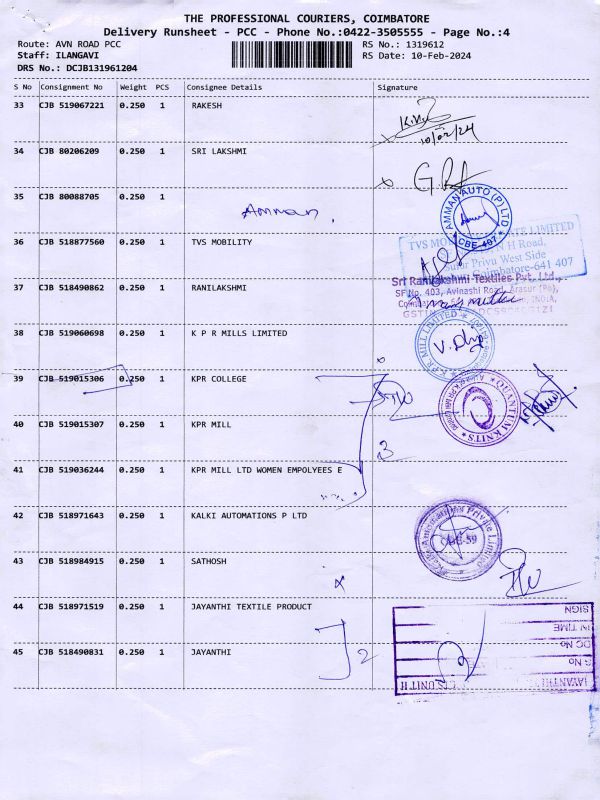 THE PROFESSIONAL COURIERS, COIMBATORE
Delivery Runsheet - PCC - Phone No.:0422-3505555 - Page No.:4
Route: AVN ROAD PCC RS No.: 1319612
Staff: ILANGAVI RS Date: 10-Feb-2024
DRS No.: DCJB131961204
S No Consignment No Weight PCS Consignee Details Signature
33 CJB 519067221 0.250 1 RAKESH
10/02/24
34 CJB 80206209 0.250 1 SRI LAKSHMI
35 CJB 80088705 0.250 1 Amman.
AMMAN AUTO (P) LTD
CBE-407
36 CJB 518877560 0.250 1 TVS MOBILITY
TVS MOBILITY PRIVATE LIMITED
N H Road,
West Side
Coimbatore-641 407
37 CJB 518490862 0.250 1 RANILAKSHMI
Sri Ranilakshmi Textiles Pvt. Ltd.,
SF No. 403, Avinashi Road, Arasur (Po),
38 CJB 519060698 0.250 1 K P R MILLS LIMITED
K.P.R. MILL LIMITED
39 CJB 519015306 0.250 1 KPR COLLEGE
QUANTUM KNITS
40 CJB 519015307 0.250 1 KPR MILL
3
41 CJB 519036244 0.250 1 KPR MILL LTD WOMEN EMPOLYEES E
42 CJB 518971643 0.250 1 KALKI AUTOMATIONS P LTD
Kalki Automations Private Limited
43 CJB 518984915 0.250 1 SATHOSH
44 CJB 518971519 0.250 1 JAYANTHI TEXTILE PRODUCT
SIGN
IN TIME
DC No
S No
45 CJB 518490831 0.250 1 JAYANTHI 2
UNIT II